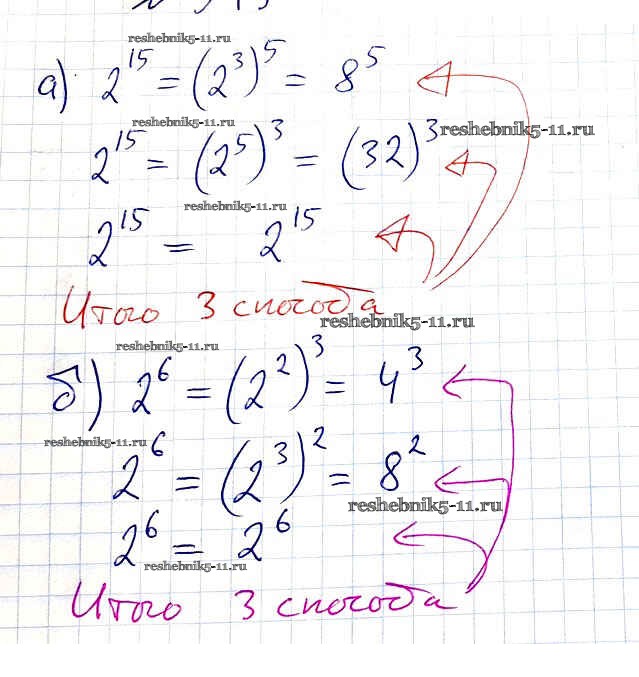 reshebnik5-11.ru
а) 2^15 = (2^3)^5 = 8^5
reshebnik5-11.ru
2^15 = (2^5)^3 = (32)^3 reshebnik5-11.ru
reshebnik5-11.ru
2^15 = 2^15
Итого 3 способа
reshebnik5-11.ru
reshebnik5-11.ru
б) 2^6 = (2^2)^3 = 4^3
reshebnik5-11.ru
2^6 = (2^3)^2 = 8^2
reshebnik5-11.ru
2^6 = 2^6
reshebnik5-11.ru
Итого 3 способа